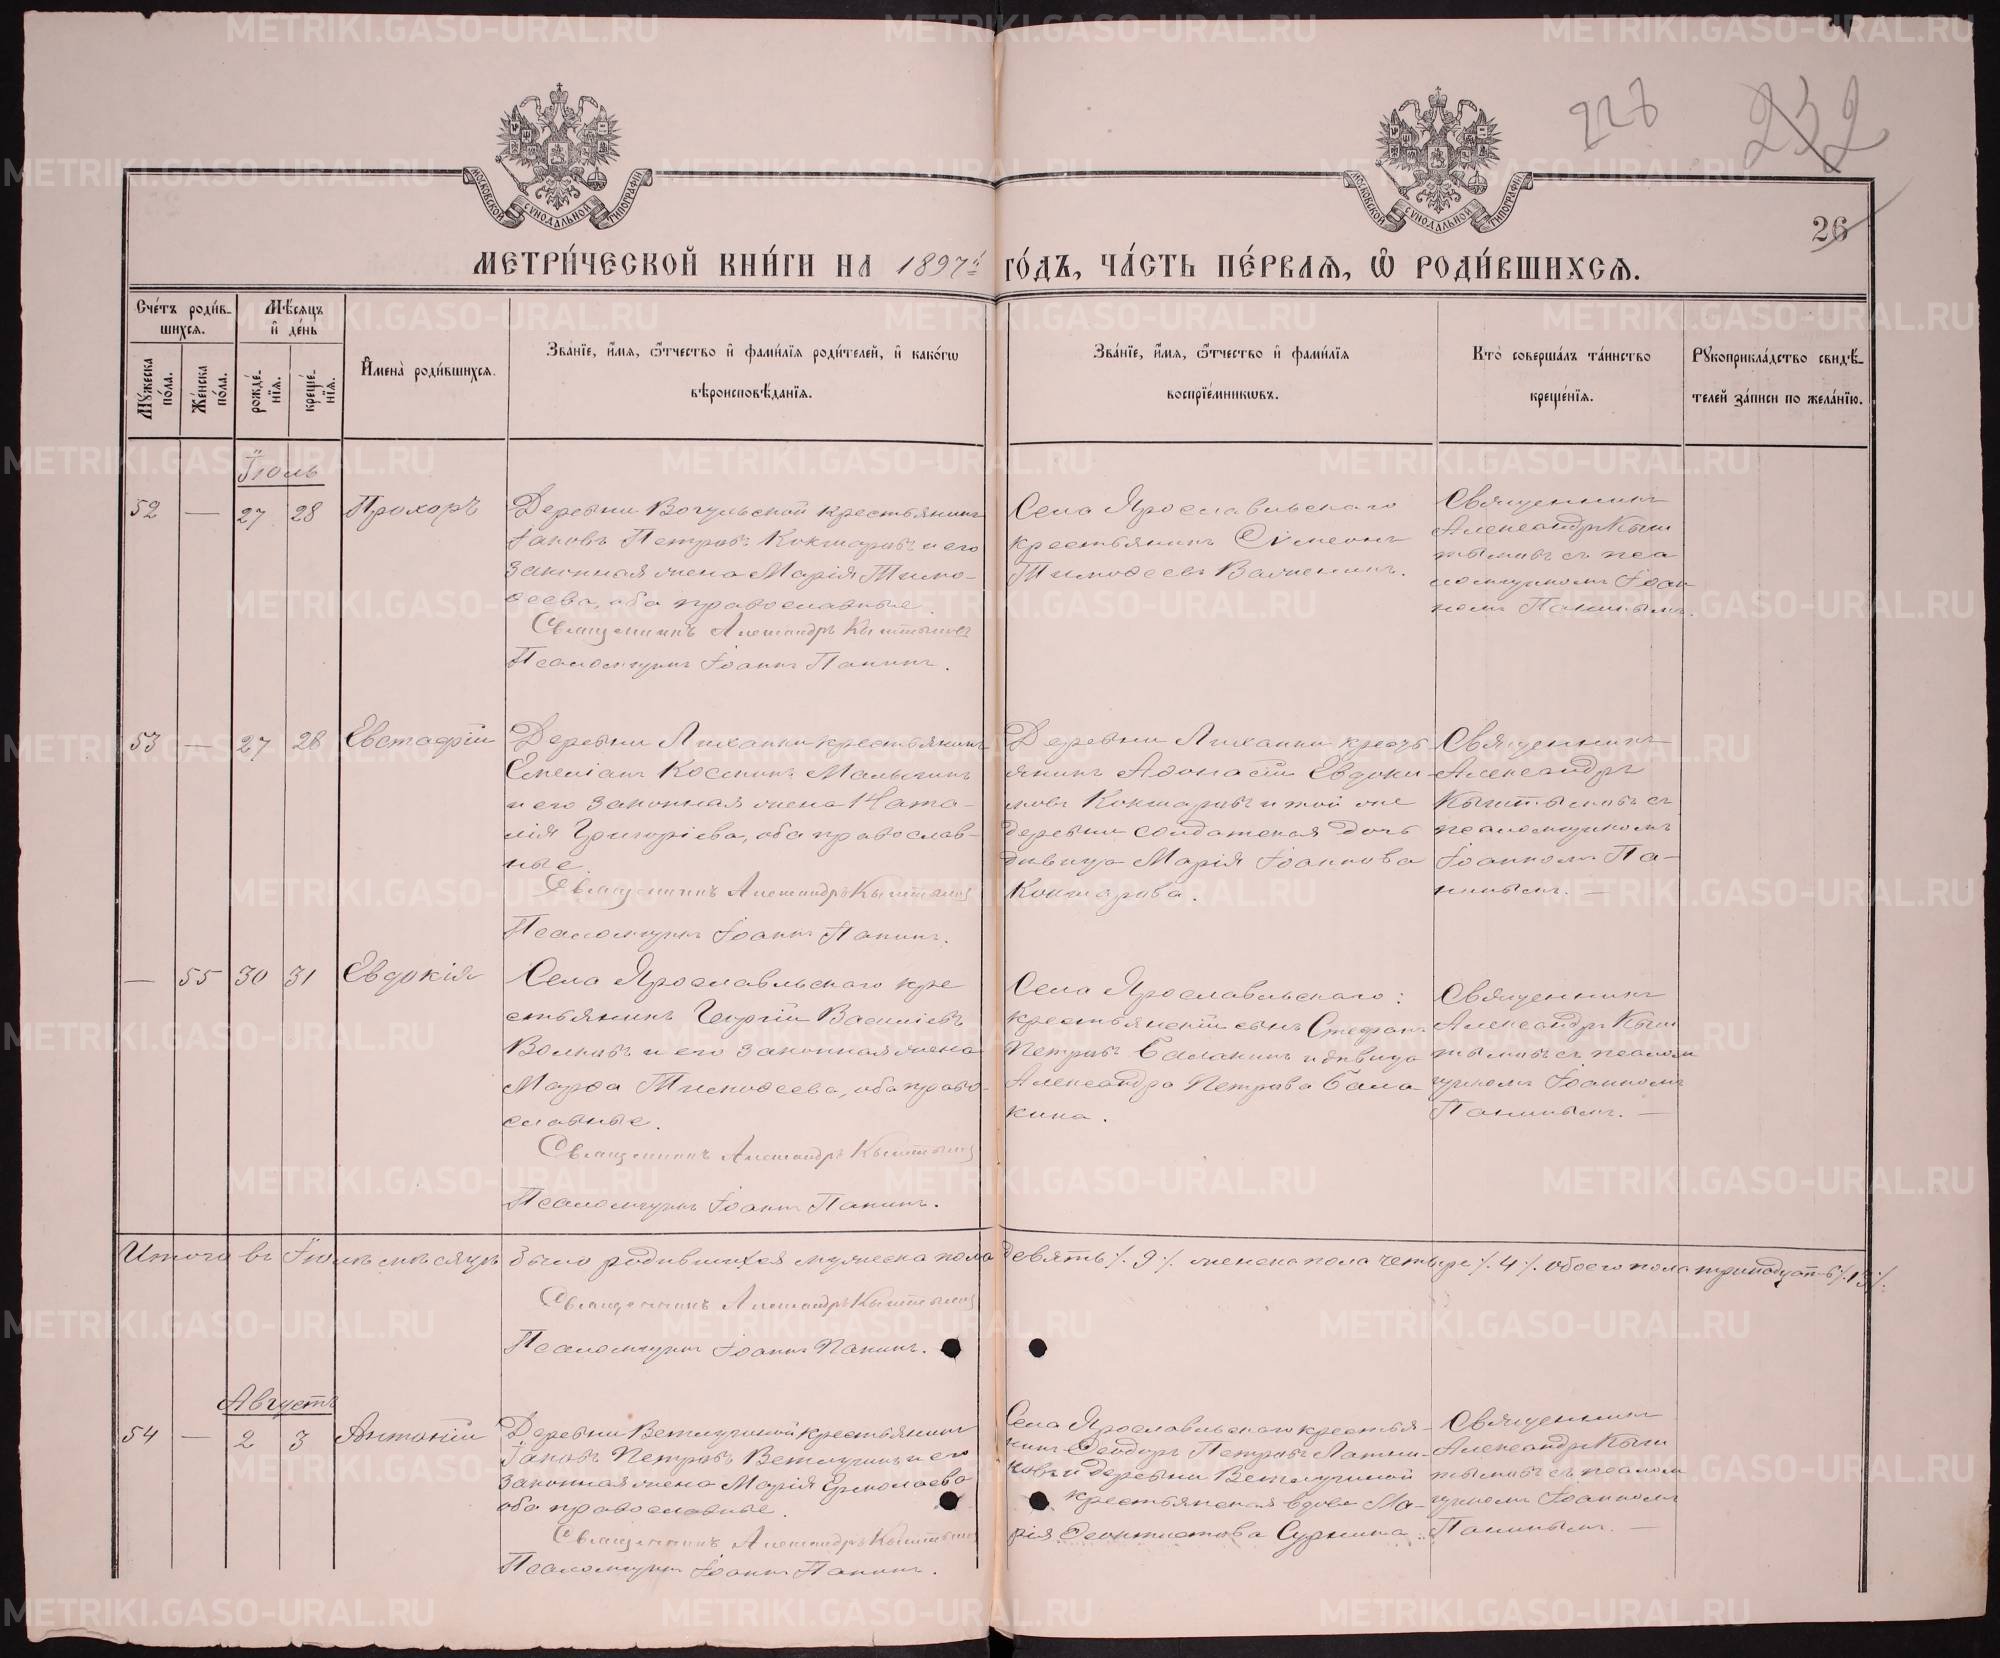 228
232
26
МОСКОВСКОЙ СУНОДАЛЬНОЙ ТИПОГРАФИИ
МОСКОВСКОЙ СУНОДАЛЬНОЙ ТИПОГРАФИИ
МЕТРИ́ЧЕСКОЙ КНИ́ГИ НА 1897й ГО́ДЪ, ЧА́СТЬ ПЕ́РВАЯ, Ѡ РОДИ́ВШИХСЯ.
Сче́тъ роди́в-
шихся.
Му́жеска по́ла.
Же́нска по́ла.
Мѣ́сяцъ
и де́нь
рожде́-
нїя.
креще́-
нїя.
Имена̀ роди́вшихся.
Зва́нїе, и́мя, ѻ́тчество и фами́лїя роди́телей, и како́гѡ
вѣроисповѣ́данїя.
Зва́нїе, и́мя, ѻ́тчество и фами́лїя
воспрїе́мникѡвъ.
Кто̀ соверша́лъ та́инство
креще́нїя.
Рукоприкла́дство свидѣ́-
телей за́писи по жела́нїю.
Іюль
52 — 27 28 Прохоръ
Деревни Вогульской крестьянинъ
Іаковъ Петровъ Кокшаровъ и его
законная жена Марія Тимо-
ѳеева, оба православные.
Священникъ Александръ Кыштымов
Псаломщикъ Іоаннъ Панинъ.
Села Ярославльскаго
крестьянинъ Сѵмеонъ
Тимоѳеевъ
Священникъ
Александръ Кыш
тымовъ съ пса
ломщикомъ Іоан
номъ Панинымъ.
53 — 27 28 Евстафій
Деревни Луханки крестьянинъ
Емеліанъ Косминъ Малыгинъ
и его законная жена Ната-
лія Григоріева, оба православ-
ные.
Священникъ Александръ Кыштымов
Псаломщикъ Іоаннъ Панинъ.
Деревни Луханки кресть
янинъ Аѳонасій Евдоки
мовъ Кокшаровъ и той же
деревни солдатская дочь
дѣвица Марія Іоаннова
Кокшарова.
Священникъ
Александръ
Кыштымовъ съ
псаломщикомъ
Іоанномъ Па-
нинымъ. —
— 55 30 31 Евдокія
Села Ярославльскаго кре
стьянинъ Георгій Василіевъ
Волковъ и его законная жена
Марѳа Тимоѳеева, оба право-
славные.
Священникъ Александръ Кыштымов
Псаломщикъ Іоаннъ Панинъ.
Села Ярославльскаго:
крестьянскій сынъ Стефанъ
Петровъ Балакинъ и дѣвица
Александра Петрова Бала
кина.
Священникъ
Александръ Кыш
тымовъ съ псалом
щикомъ Іоанномъ
Панинымъ. —
Итого въ Іюлѣ мѣсяцѣ было родившихся мужеска пола девять ./. 9 ./. женска пола четыре ./. 4 ./. обоего пола тринадцать ./. 13 ./.
Священникъ Александръ Кыштымов
Псаломщикъ Іоаннъ Панинъ.
Августъ
54 — 2 3 Антоній
Деревни Ветлугиной крестьянинъ
Іаковъ Петровъ Ветлугинъ и его
законная жена Марія Ермолаева
оба православные.
Священникъ Александръ Кыштымов
Псаломщикъ Іоаннъ Панинъ.
Села Ярославльскаго крестья-
нинъ Ѳеодоръ Петровъ Латни-
ковъ и деревни Ветлугиной
крестьянская вдова Ма-
рія Ѳеоктистова
Священникъ
Александръ Кыш
тымовъ съ псалом
щикомъ Іоанномъ
Панинымъ. —